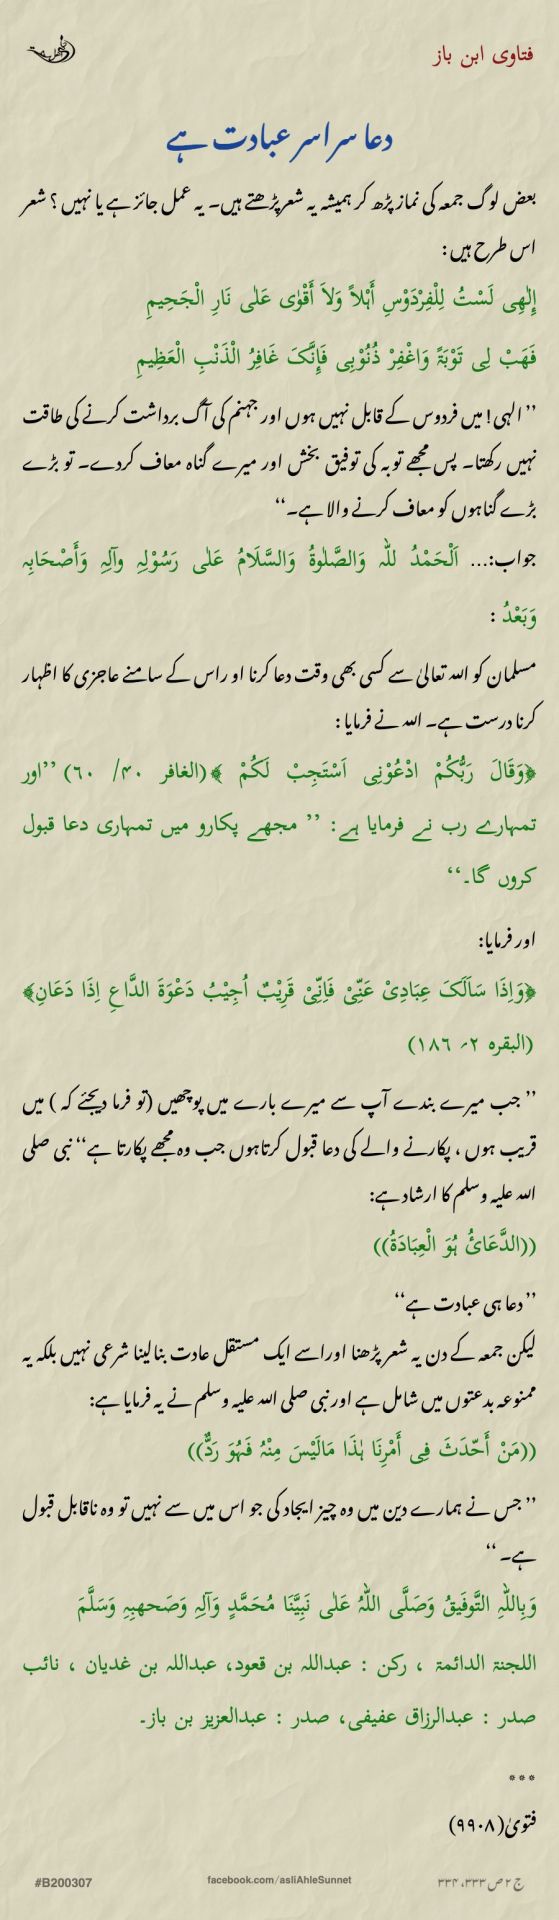 فتاوی ابن باز
دعا سراسر عبادت ہے
بعض لوگ جمعہ کی نماز پڑھ کر ہمیشہ یہ شعر پڑھتے ہیں۔ یہ عمل جائز ہے یا نہیں؟ شعر
اس طرح ہیں:
إِلٰھِی لَسْتُ لِلْفِرْدَوْسِ أَہْلاً وَلاَ أَقْوٰی عَلٰی نَارِ الْجَحِیمِ
فَھَبْ لِی تَوْبَۃً وَاغْفِرْ ذُنُوْبِی فَإِنَّکَ غَافِرُ الْذَنْبِ الْعَظِیمِ
’’ الہی! میں فردوس کے قابل نہیں ہوں اور جہنم کی آگ برداشت کرنے کی طاقت
نہیں رکھتا۔ پس مجھے توبہ کی توفیق بخش اور میرے گناہ معاف کردے۔ تو بڑے
بڑے گناہوں کو معاف کرنے والا ہے۔‘‘
جواب:... اَلْحَمْدُ للّٰہ وَالصَّلٰوۃُ وَالسَّلَامُ عَلٰی رَسُوْلِہِ وآلِہِ وَأَصْحَابِہ
وَبَعْدُ :
مسلمان کو اللہ تعالیٰ سے کسی بھی وقت دعا کرنا او راس کے سامنے عاجزی کا اظہار
کرنا درست ہے۔ اللہ نے فرمایا:
﴿وَقَالَ رَبُّکُمْ ادْعُوْنِی اَسْتَجِبْ لَکُمْ ﴾(الغافر ۴۰/ ۶۰) ’’اور
تمہارے رب نے فرمایا ہے: ’’ مجھے پکارو میں تمہاری دعا قبول
کروں گا۔‘‘
اور فرمایا:
﴿وَاِذَا سَاَلَکَ عِبَادِیْ عَنِّیْ فَاِنِّیْ قَرِیْبٌ اُجِیْبُ دَعْوَۃَ الدَّاعِ اِذَا دَعَانِ﴾
(البقرہ ۲؍ ۱۸۶)
’’ جب میرے بندے آپ سے میرے بارے میں پوچھیں (تو فرما دیجئے کہ ) میں
قریب ہوں ، پکارنے والے کی دعا قبول کرتاہوں جب وہ مجھے پکارتا ہے‘‘ نبی صلی
اللہ علیہ وسلم کا ارشاد ہے:
((الدَّعَائُ ہُوَ الْعِبَادَۃُ))
’’ دعا ہی عبادت ہے‘‘
لیکن جمعہ کے دن یہ شعر پڑھنا اوراسے ایک مستقل عادت بنالینا شرعی نہیں بلکہ یہ
ممنوعہ بدعتوں میں شامل ہے اور نبی صلی اللہ علیہ وسلم نے یہ فرمایا ہے:
((مَنْ أَحّدَثَ فِی أَمْرِنَا ہٰذَا مَالَیْسَ مِنْہُ فَہُوَ رَدٌّ))
’’ جس نے ہمارے دین میں وہ چیز ایجاد کی جو اس میں سے نہیں تو وہ ناقابل قبول
ہے۔ ‘‘
وَبِاللّٰہِ التَّوفَیقُ وَصَلَّی اللّٰہُ عَلٰی نَبِیَّنَا مُحَمَّدٍ وَآلِہِ وَصَحھبِہِ وَسَلَّمَ
اللجنۃ الدائمۃ ، رکن : عبداللہ بن قعود، عبداللہ بن غدیان ، نائب
صدر : عبدالرزاق عفیفی، صدر : عبدالعزیز بن باز۔
***
فتویٰ(۹۹۰۸)
ج ۲ ص ۳۳۳، ۳۳۴
facebook.com/asliAhleSunnet
#B200307